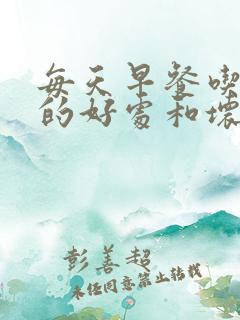 每天早餐喫
的好處和壞
彭善超
未经同意禁止转载